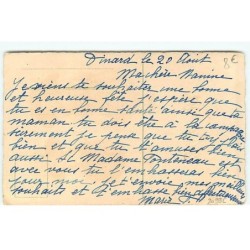 Dinard le 20 Août
8€
Ma chère Nanine
Je viens te souhaiter une bonne
et heureuse fête j'espère que
tu es en bonne santé ainsi que ta
maman tu dois être à la campagne
surement je pense que tu vas
bien et que tu t'amuses bien
aussi si Madame est
avec vous tu l'embrasses bien
pour moi je t'envoie mes meilleurs
souhaits et t'embrasse bien affectueusement